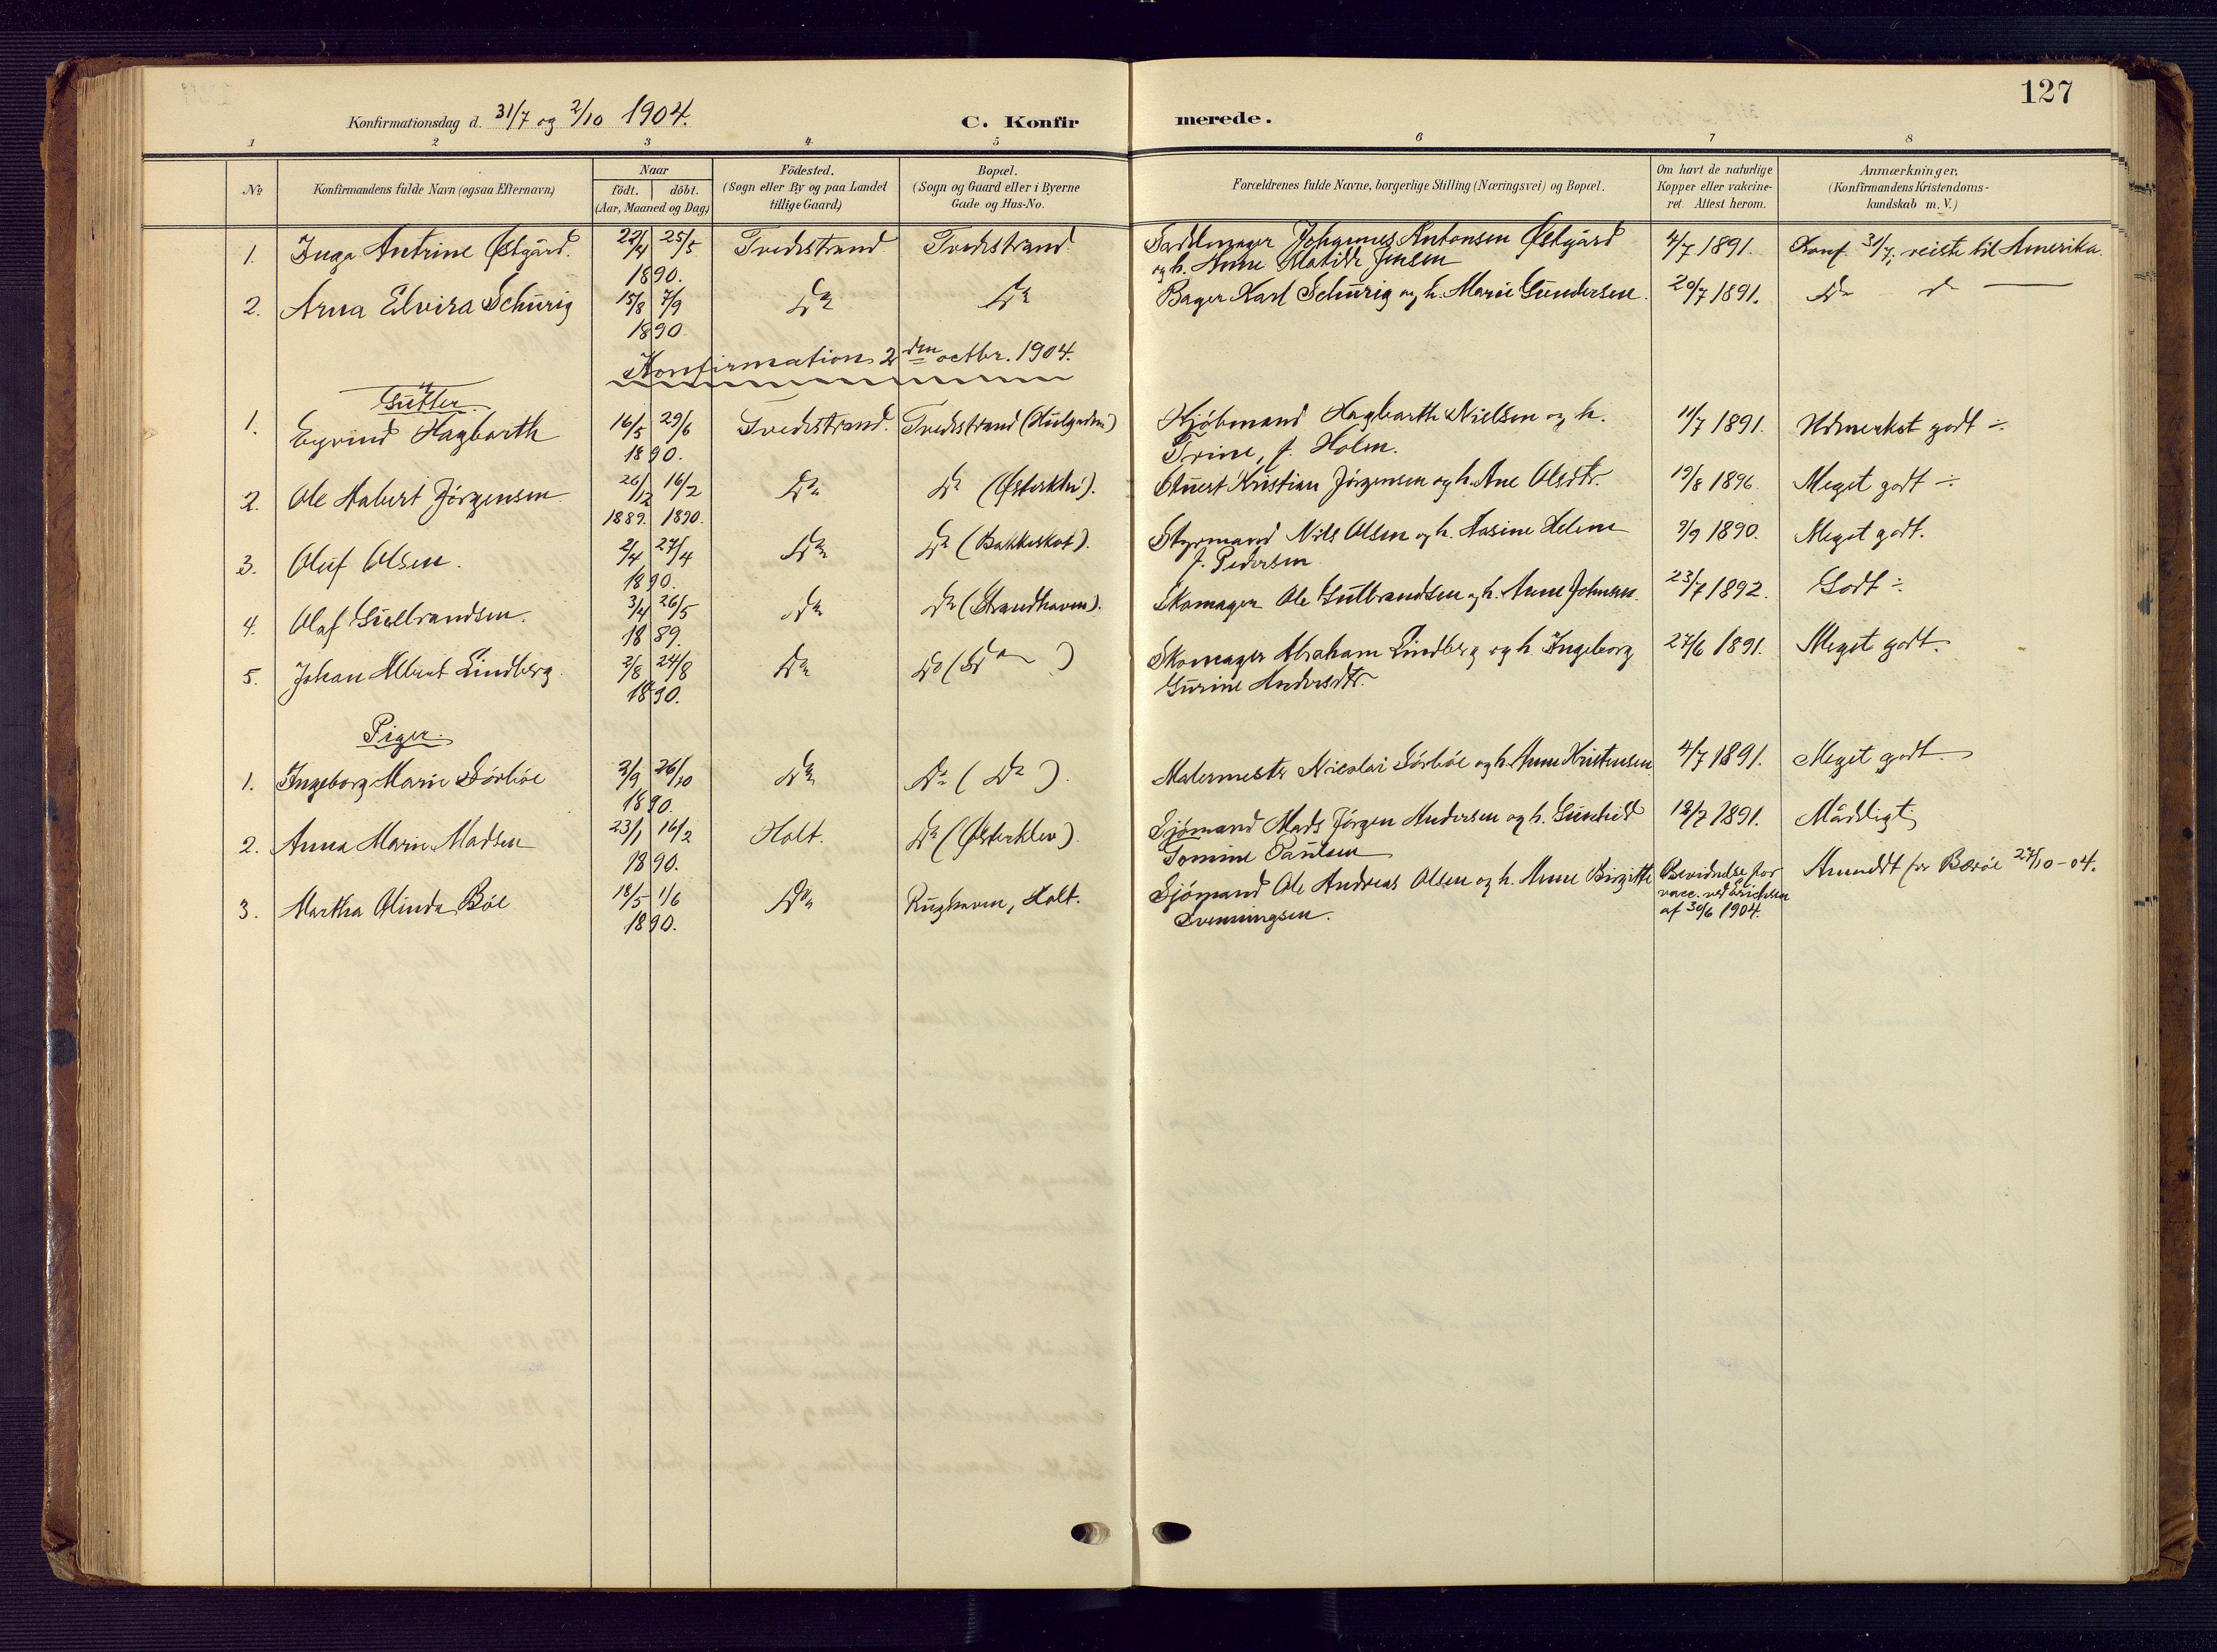 127
Konfirmationsdag d. 31/7 og 2/10 1904.
C. Konfirmerede.
1 2 3 4 5 6 7 8
No
Konfirmandens fulde Navn (ogsaa Efternavn)
Naar
födt. döbt.
(Aar, Maaned og Dag)
Födested.
(Sogn eller By og paa Landet
tillige Gaard)
Bopæl.
(Sogn og Gaard eller i Byerne
Gade og Hus-No.
Forældrenes fulde Navne, borgerlige Stilling (Næringsvei) og Bopæl.
Om havt de naturlige
Kopper eller vakcine-
ret. Attest herom.
Anmærkninger,
(Konfirmandens Kristendoms-
kundskab m. V.)
1. Inga Antrine Østgård. 22/4 25/5 1890. Tvedestrand Tvedestrand Sadelmager Johannes Antonsen Østgård
og h. Anne Matilde Jensen 4/7 1891. Konf. 31/7, reiste til Amerika.
2. Arna Elvira Schürig 15/8 7/9 1890. Do Do Bager Karl Schürig og h. Marie Gundersen. 20/7 1891. Do do —
Konfirmation 2den octbr. 1904.
Gutter.
1. Eyvind Hagbarth 16/5 29/6 1890. Tvedestrand. Tvedestrand (Hulgaden) Kjøbmand Hagbarth Nielsen og h.
Trine, f. Holm. 11/7 1891. Udmerket godt ÷
2. Ole Halvert Jörgensen 26/12 1889. 16/2 1890. Do Do (Østerklev). Kristian Jörgensen og h. Ane Olsdtr. 19/8 1896. Meget godt ÷
3. Oluf Olsen. 2/4 27/4 1890. Do Do (Bakkeskot). Styrmand Nils Olsen og h. Hasine Helene
f. Pedersen 9/9 1890. Meget godt.
4. Olaf Gulbrandsen. 3/4 26/5 1889. Do Do (Strandhaven). Skomager Ole Gulbrandsen og h. Anne Johnsen. 23/7 1892. Godt ÷
5. Johan Albert Lindberg. 2/8 24/8 1890. Do Do (Do) Skomager Abraham Lindberg og h. Ingeborg
Gurine Andersdtr. 27/6 1891. Meget godt.
Piger.
1. Ingeborg Marie Sörböe 2/9 26/10 1890. Do Do (Do). Malermester Nicolai Sörböe og h. Anne Kristensen. 4/7 1891. Meget godt.
2. Anna Marie Madsen 23/1 16/2 1890. Holt. Do (Østerklev) Sjömand Mads Jörgen Andersen og h. Gunhild
Tomine Paulsen 12/7 1891. Mådeligt
3. Martha Olinda Böe 18/5 1/6 1890. Do Rughaven, Holt. Sjömand Ole Andreas Olsen og h. Anne Birgitte
Svenningsen. Bevidnelse for
vacc. ved Erichsen
af 30/6 1904. Anmeldt for Boröe 27/10-04.